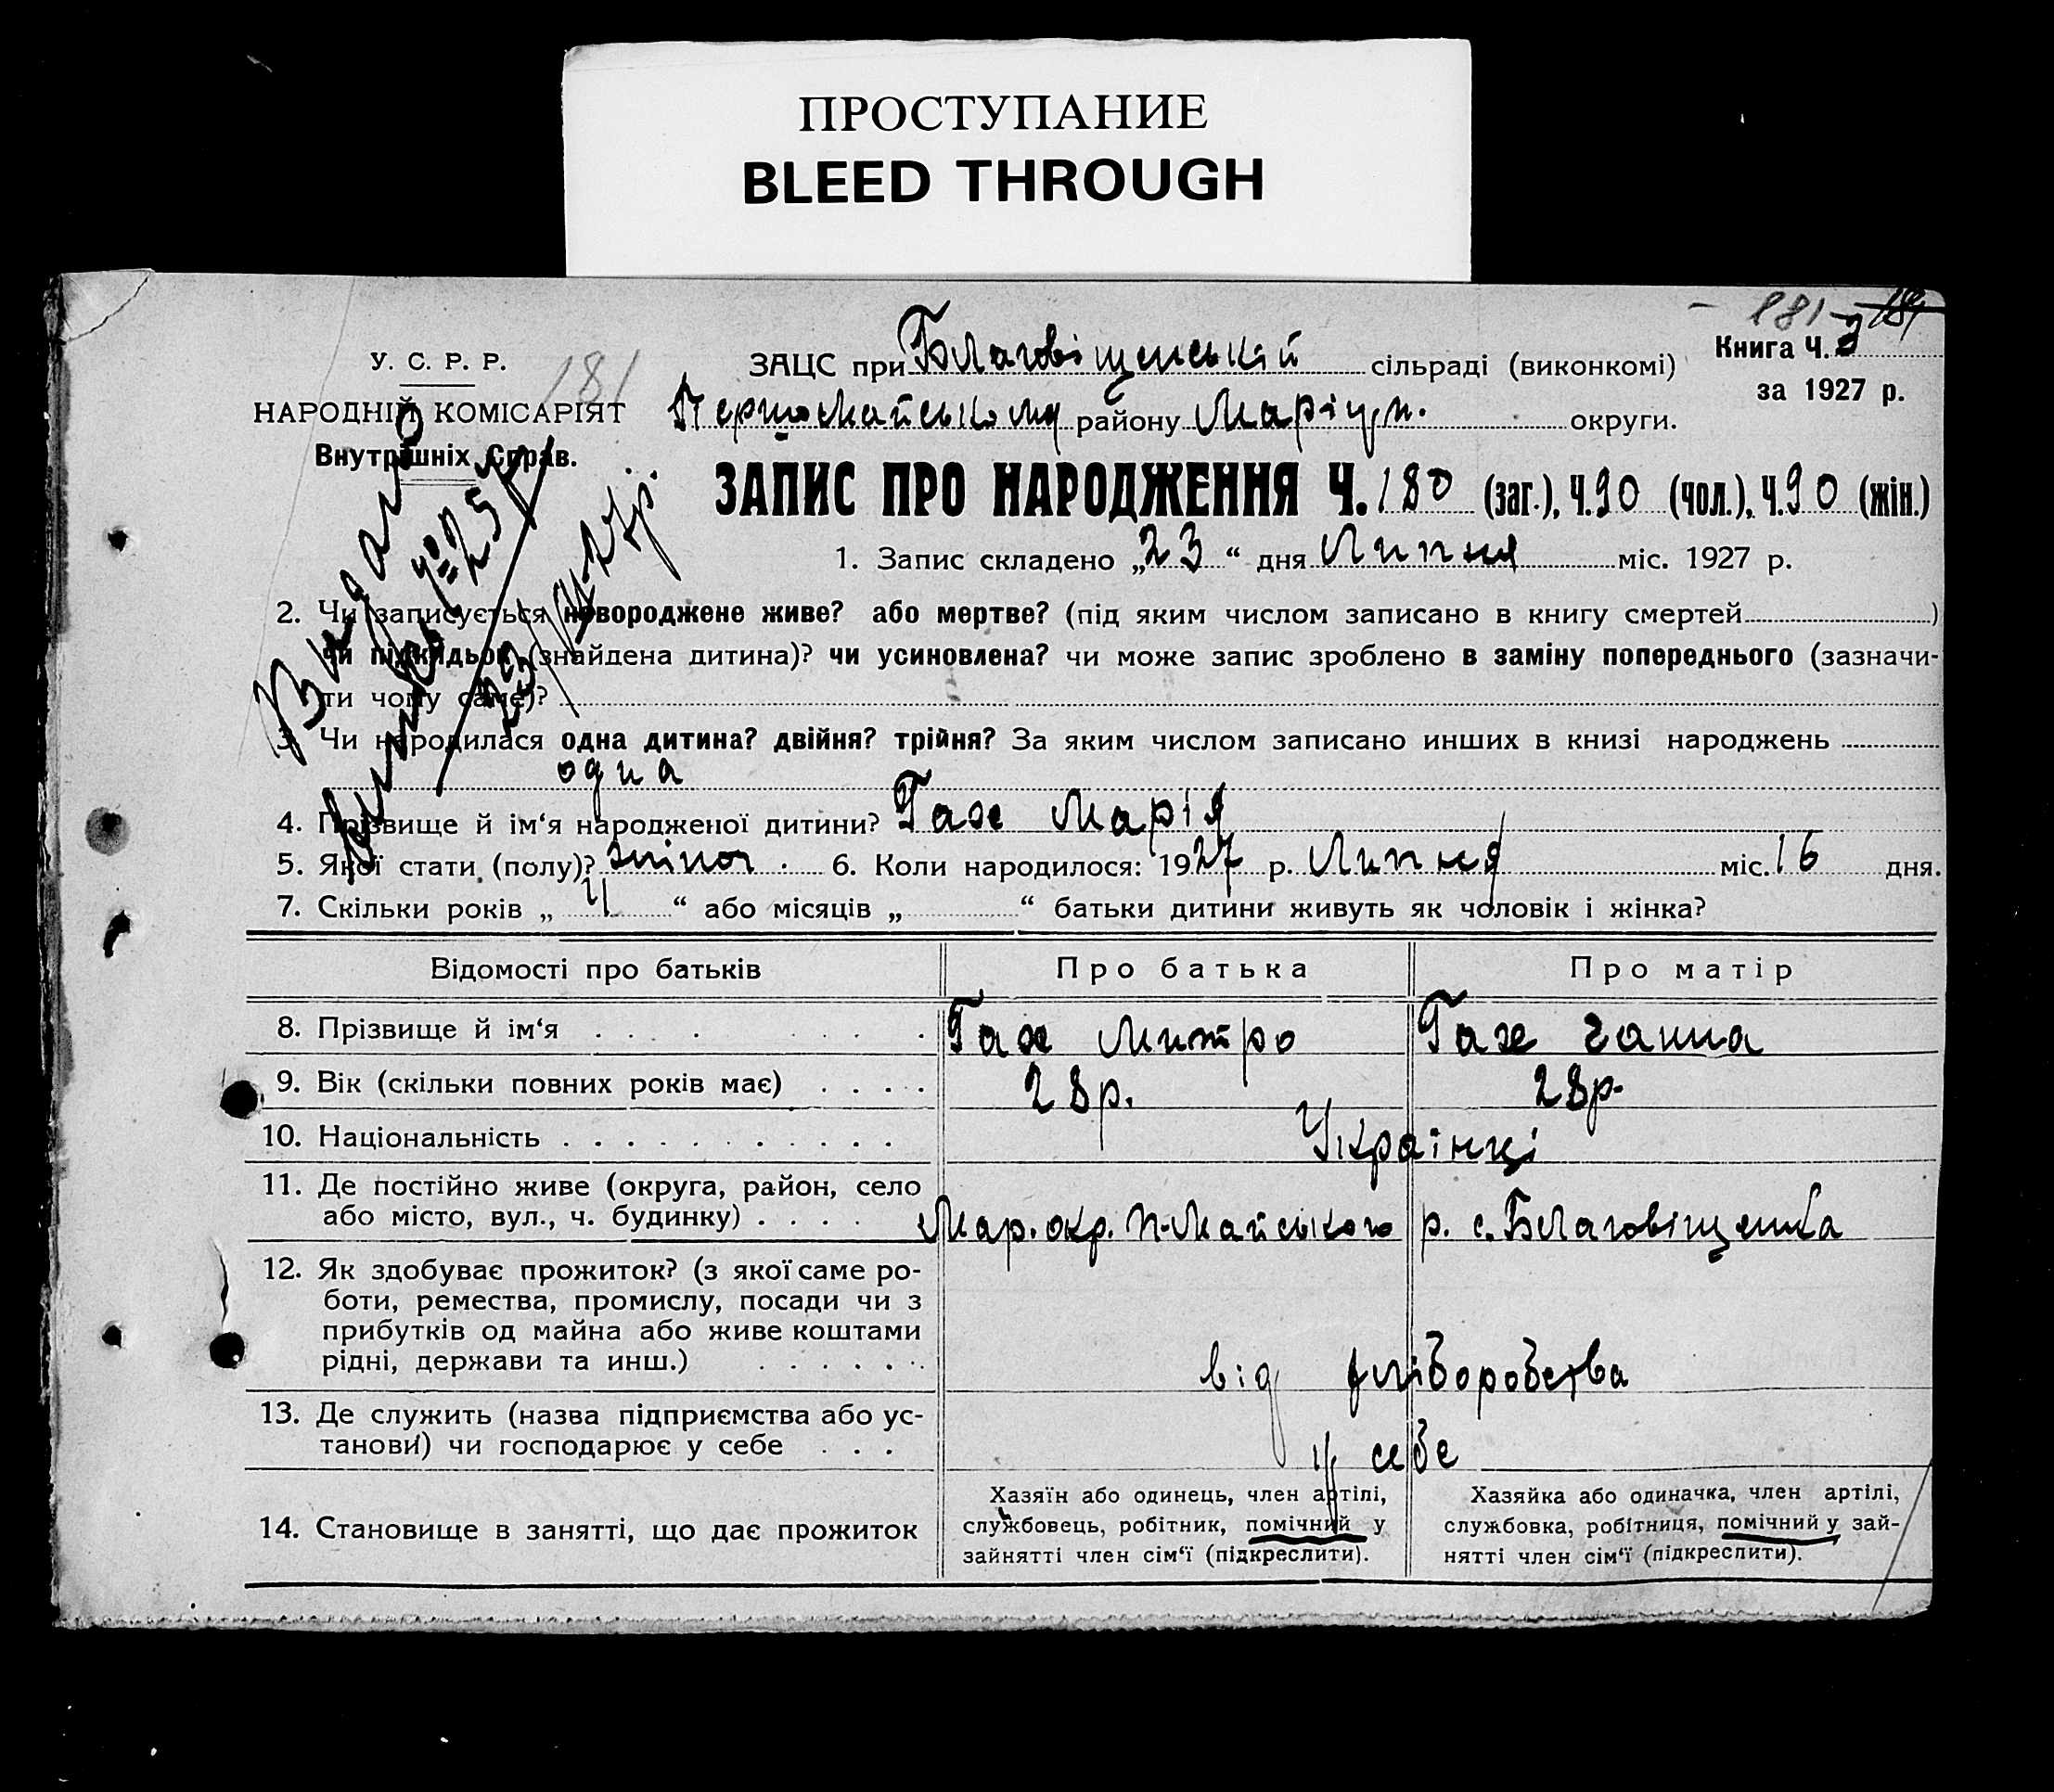 ПРОСТУПАНИЕ
BLEED THROUGH
181
Книга Ч. 3
за 1927 р.
У. С. Р. Р.
181
НАРОДНІЙ КОМІСАРІЯТ
Внутрішніх Справ.
ЗАЦС при Благовіщенській сільраді (виконкомі)
Першомайському району Маріуп. округи.
ЗАПИС ПРО НАРОДЖЕННЯ Ч. 180 (заг.), Ч. 90 (чол.), Ч. 90 (жін.)
1. Запис складено „23“ дня Липня міс. 1927 р.
2. Чи записується новороджене живе? або мертве? (під яким числом записано в книгу смертей )
чи підкидьок (знайдена дитина)? чи усиновлена? чи може запис зроблено в заміну попереднього (зазначи-
ти чому саме)?
3. Чи народилася одна дитина? двійня? трійня? За яким числом записано инших в книзі народжень
одна
4. Прізвище й ім‘я народженої дитини? Гаже Марія
5. Якої стати (полу)? жіноч. 6. Коли народилося: 1927 р. Липня міс. 16 дня.
7. Скільки років „ 4 “ або місяців „ “ батьки дитини живуть як чоловік і жінка?
Відомості про батьків Про батька Про матір
8. Прізвище й ім‘я Гаже Митро Гаже Ганна
9. Вік (скільки повних років має) 28р. 28р.
10. Національність Українці
11. Де постійно живе (округа, район, село
або місто, вул., ч. будинку) Мар. окр. П-Майського р. с. Благовіщенка
12. Як здобуває прожиток? (з якої саме ро-
боти, ремества, промислу, посади чи з
прибутків од майна або живе коштами
рідні, держави та инш.) від хліборобства
13. Де служить (назва підприємства або ус-
танови) чи господарює у себе у себе
14. Становище в занятті, що дає прожиток
Хазяїн або одинець, член артілі,
службовець, робітник, помічний у
зайнятті член сім‘ї (підкреслити).
Хазяйка або одиначка, член артілі,
службовка, робітниця, помічний у зай-
нятті член сім‘ї (підкреслити).